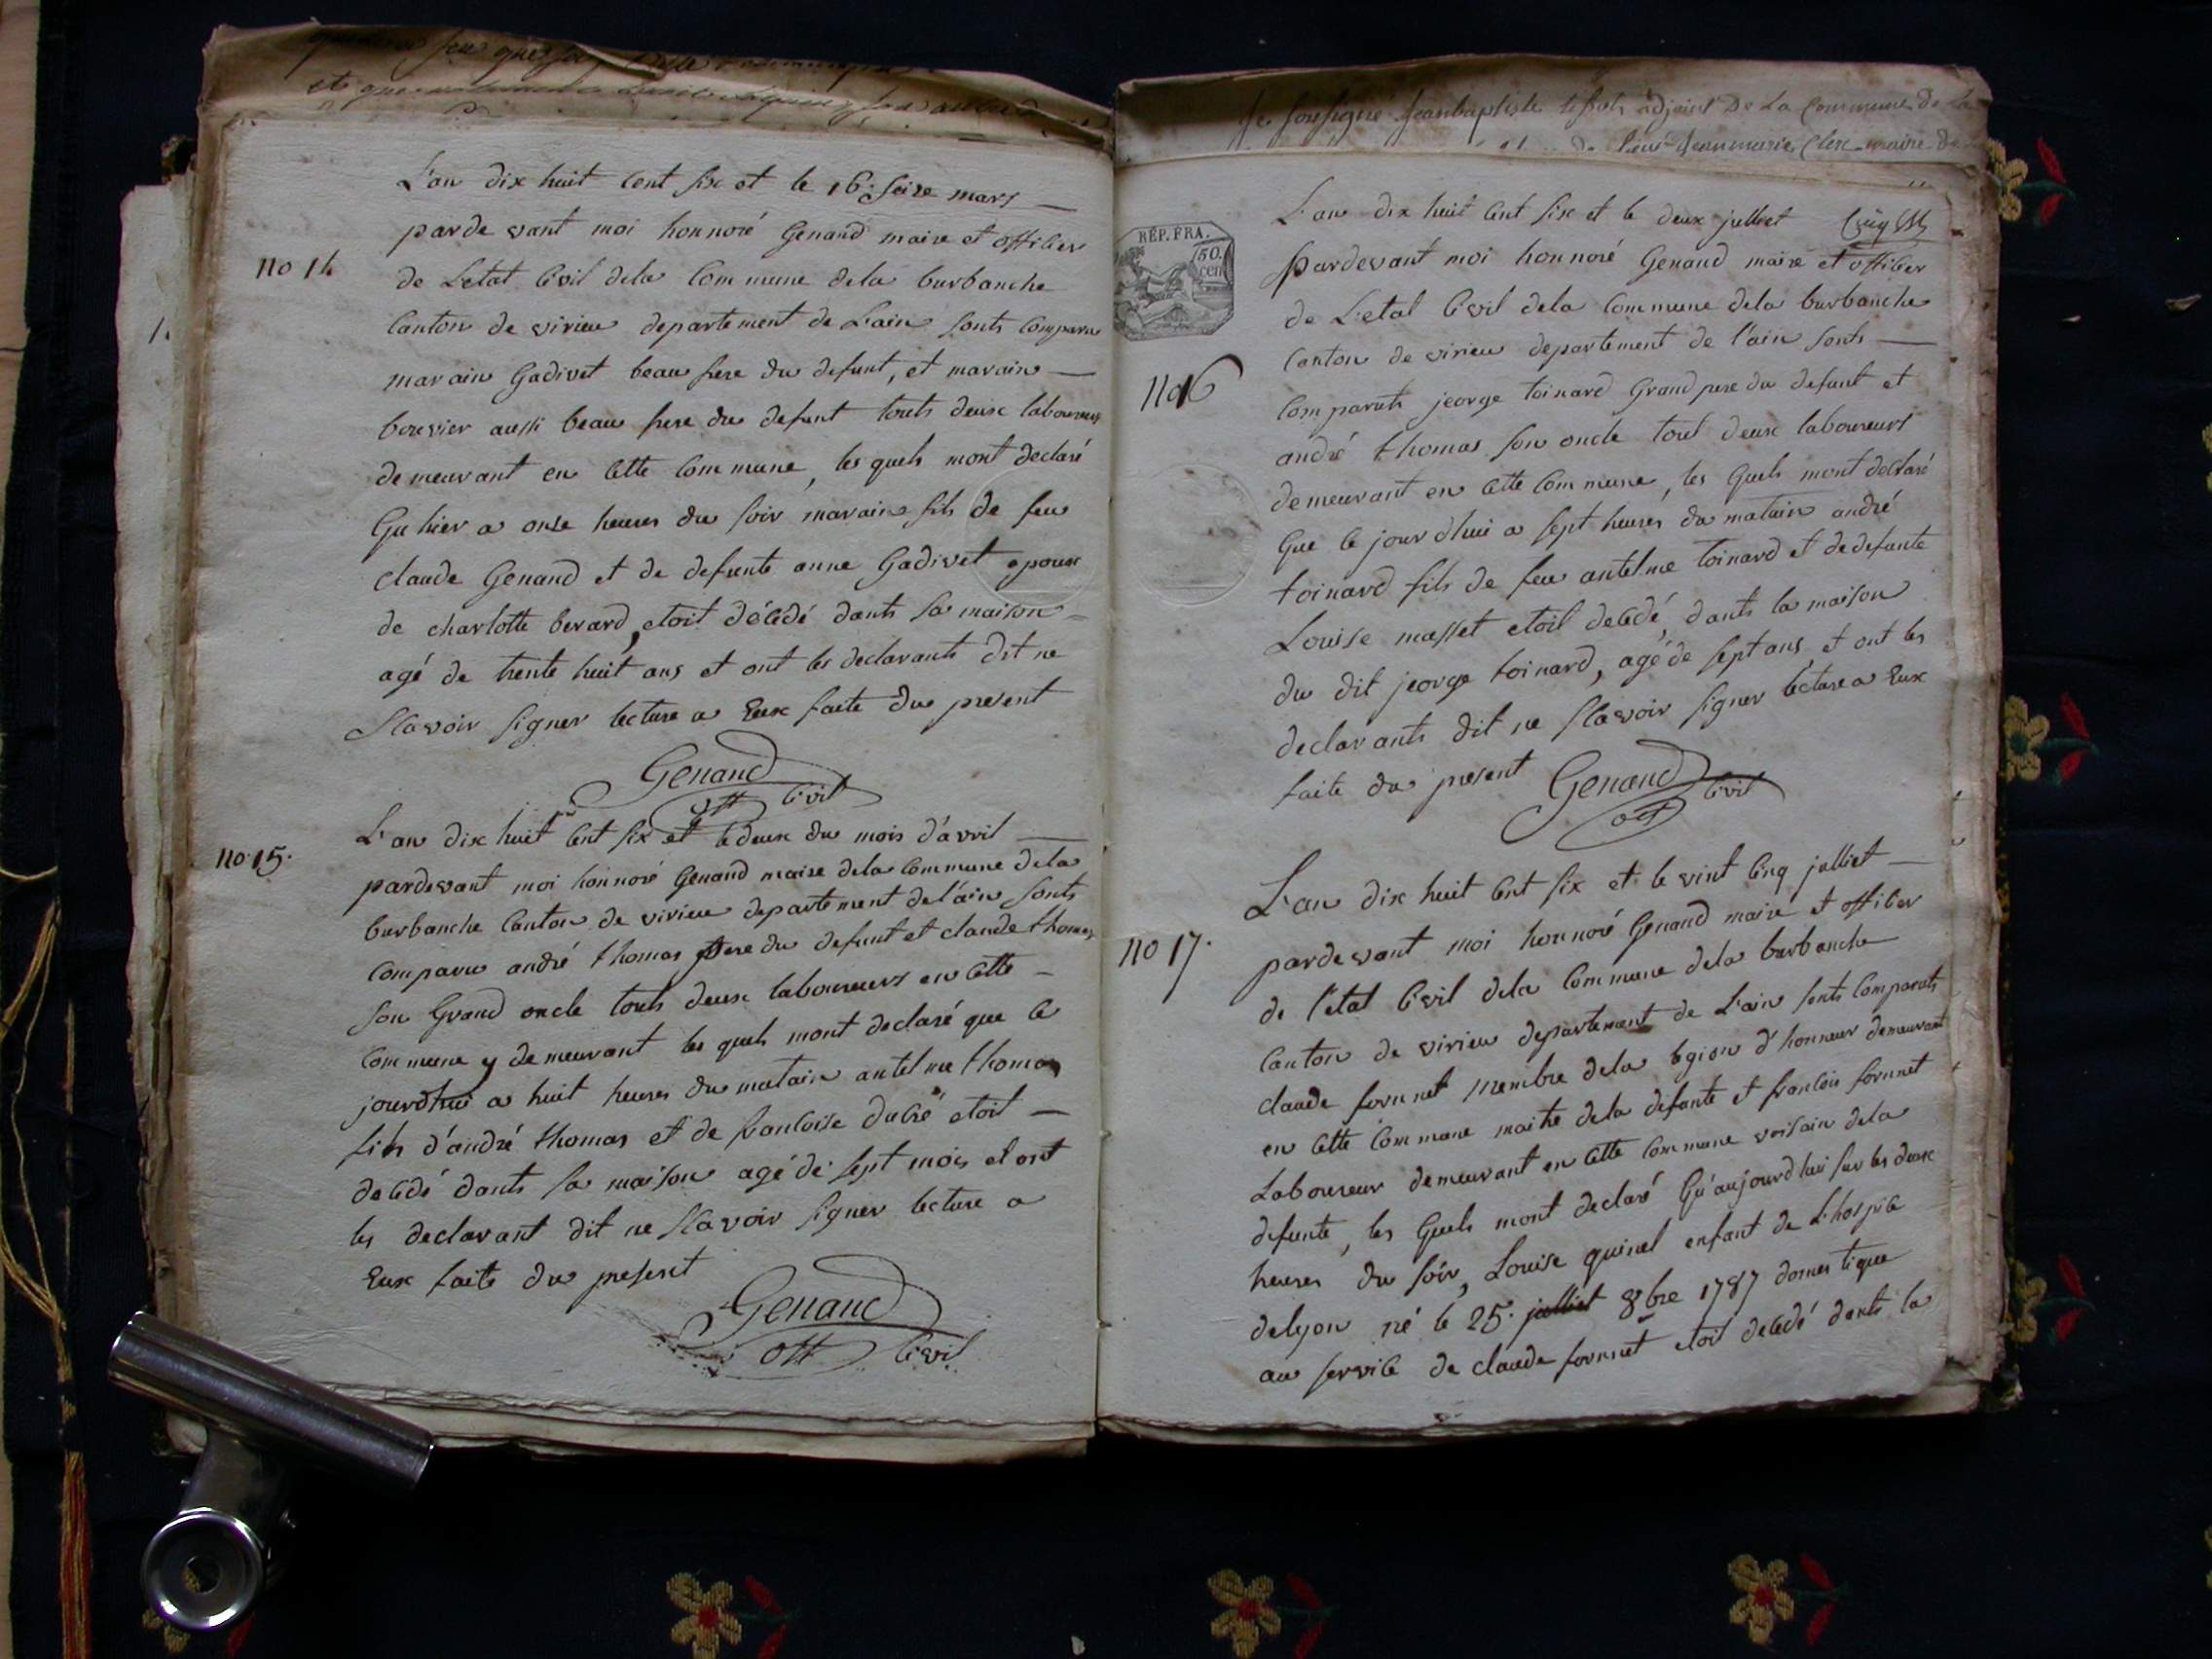 et que
L'an dix huit cent six et le 16: seize mars
no 14
parde vant moi honnoré Genand maire et officier
de L'etat Civil dela Commune dela burbanche
Canton de virieu departement de L'ain sonts comparu
marain Gadivet beau frere du defunt, et marain
bouvier aussi beau frere du defunt touts deux laboureurs
demeurant en Cette Commune, les quels mont declaré
Qu hier a onse heures du soir marain fils de feu
claude Genand et de defunte anne Gadivet epoux
de charlotte berard, etoit décédé dants sa maison
agé de trente huit ans et ont les declarants dit ne
scavoir signer lecture a Eux faite du present
Genand
off Civil
no 15.
L'an dix huit cent six et le deux du mois d'avril
pardevant moi honnoré Genand maire dela Commune dela
burbanche Canton de virieu departement del'ain sonts
comparu andré thomas pere du defunt et claude thomas
son Grand oncle touts deux laboureurs en Cette
Commune y demeurant les quels mont declaré que Ce
jourdhui a huit heures du matain antelme thomas
fils d'andré thomas et de francoise dubié etoit
decedé dants sa maison agé de sept mois et ont
les declarant dit ne scavoir signer lecture a
Eux faite du present
Genand
off Civil
Je soussigné Jeanbaptiste adjoint De La Commune De La
De Jeanmarie Clerc maire De
RÉP. FRA.
50.
cen
L'an dix huit cent six et le deux julliet
pardevant moi honnoré Genand maire et officier
de L'etat Civil dela Commune dela burbanche
Canton de virieu departement de l'ain sonts
no 16
Comparuts jeorge toinard Grand pere du defunt et
andré thomas son oncle tout deux laboureurs
demeurant en Cette Commune, les Quels mont declaré
Que Ce jour dhui a sept heures du matain andré
toinard fils de feu antelme toinard et dedefunte
Louise masset etoit decedé, dants la maison
du dit jeorge toinard, agé de sept ans et ont les
declarants dit ne scavoir signer lecture a Eux
faite du present
Genand
off Civil
L'an dix huit cent six et le vint Cinq julliet
no 17.
pardevant moi honnoré Genand maire et officier
de l'etat Civil dela Commune dela burbanche
Canton de virieu departement de L'ain sonts Comparuts
claude fornnet membre dela legion d'honneur demeurant
en Cette Commune maitre dela defunte et francois fornnet
Laboureur demeurant en Cette Commune voisain dela
defunte, les Quels mont declaré Qu'aujourd hui sur les deux
heures du soir, Louise quinel enfant de L'hospice
delyon né le 25. julliet 8bre 1787 domestique
au service de claude fornnet etoit decedé dants la